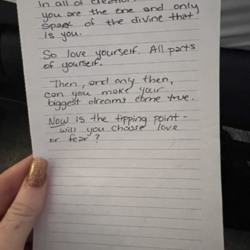 In all of creation
you are the one and only
spark of the divine that
is you.
So love yourself. All parts
of yourself.
Then, and only then,
can you make your
biggest dreams come true.
Now is the tipping point -
will you choose love
or fear?